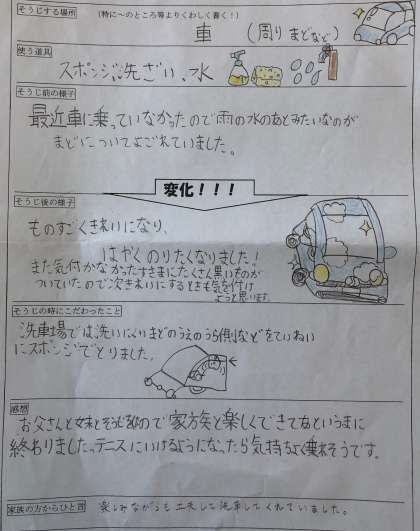 そうじする場所 (特に〜のところ等よりくわしく書く!)
車 (周り まどなど)
使う道具
スポンジ、洗ざい、水
そうじ前の様子
最近車に乗っていなかったので雨の水のあとみたいなのが
まどについてよごれていました。
変化!!!
そうじ後の様子
ものすごくきれいになり、
はやくのりたくなりました!
また気付かなかったすきまにたくさん黒いものが
ついていたので次きれいにするときも気を付け
ようと思います。
そうじの時にこだわったこと
洗車場では洗いにくいまどのうえのうら側などをていねい
にスポンジでとりました。
感想
お父さんと妹とそうじをしたので家族と楽しくできてあというまに
終わりました。テニスにいけるようになったら気持ちよく乗れそうです。
家族の方からひと言
楽しみながらも工夫して洗車してくれていました。